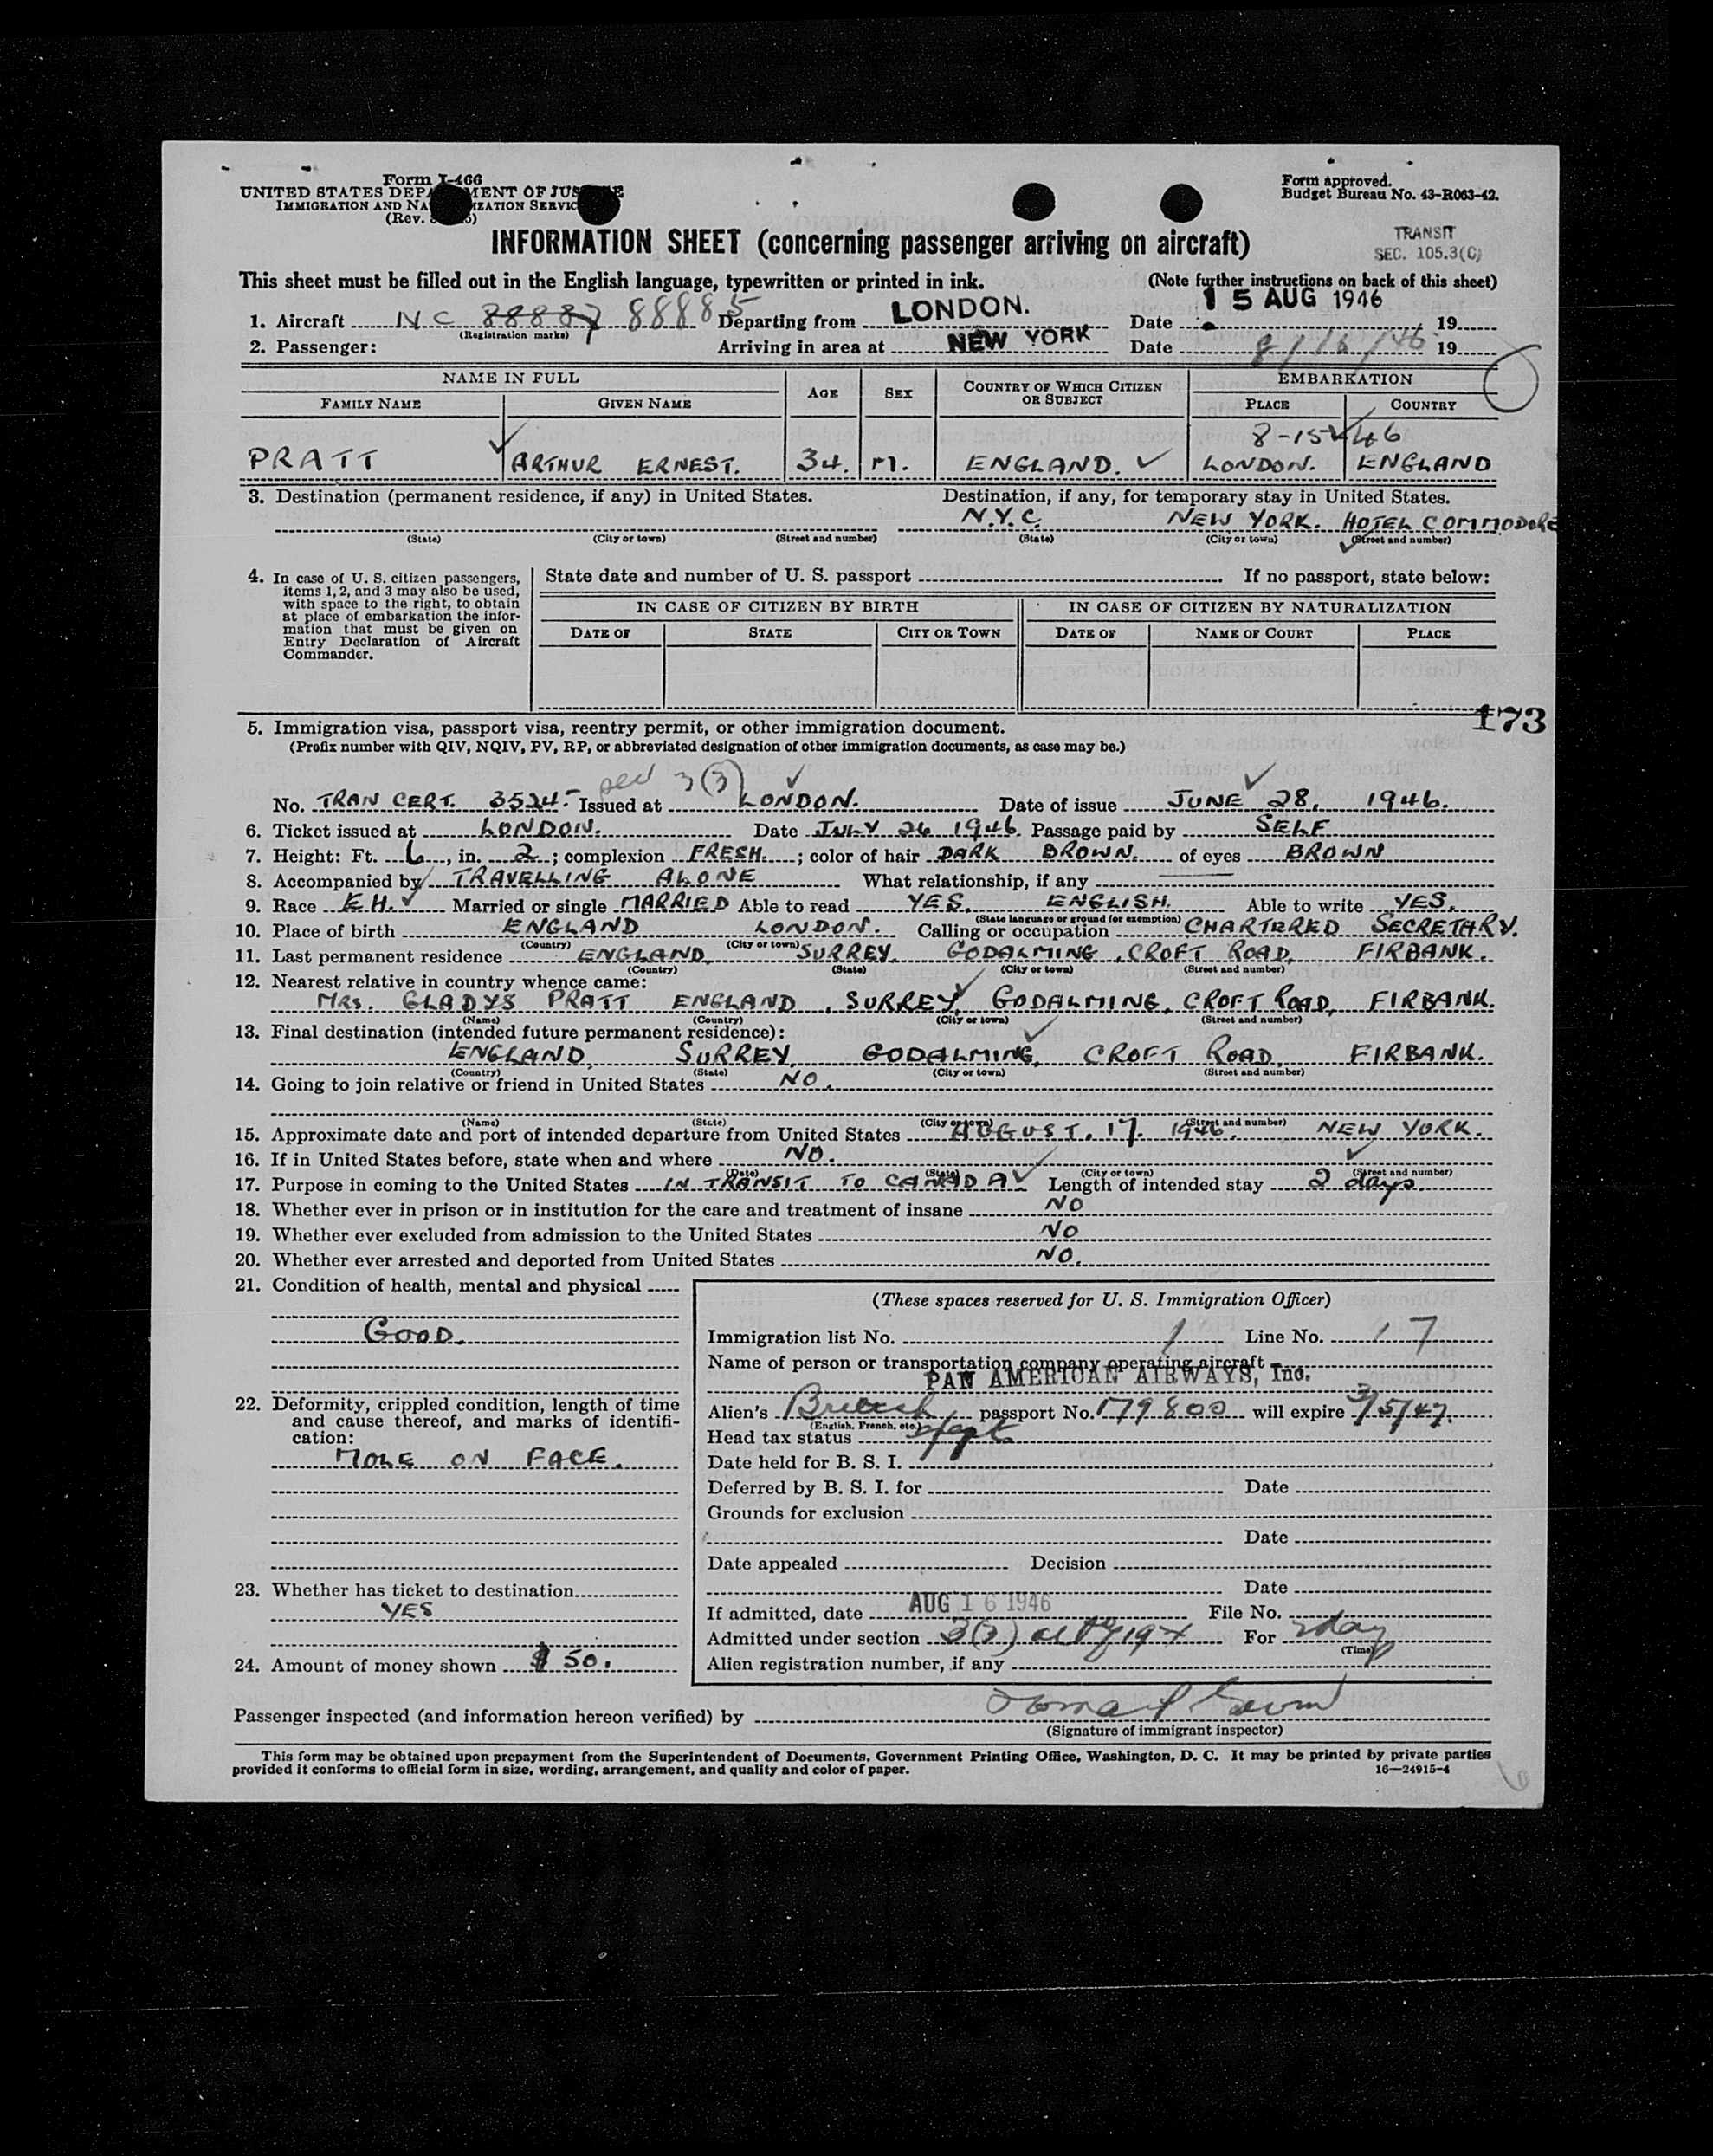 Form I-466
UNITED STATES DEPARTMENT OF JUSTICE
IMMIGRATION AND NATURALIZATION SERVICE
(Rev.
Form approved.
Budget Bureau No. 43-R063-42.
INFORMATION SHEET (concerning passenger arriving on aircraft)
TRANSIT
SEC. 105.3(C)
This sheet must be filled out in the English language, typewritten or printed in ink. (Note further instructions on back of this sheet)
1. Aircraft NC 88887 88885 Departing from LONDON. Date 15 AUG 1946 19
(Registration marks)
2. Passenger: Arriving in area at NEW YORK Date 8/16/46 19
NAME IN FULL AGE SEX COUNTRY OF WHICH CITIZEN OR SUBJECT EMBARKATION
FAMILY NAME GIVEN NAME PLACE COUNTRY
8-15-46
PRATT ARTHUR ERNEST. 34. M. ENGLAND. LONDON. ENGLAND
3. Destination (permanent residence, if any) in United States. Destination, if any, for temporary stay in United States.
N.Y.C. NEW YORK. HOTEL COMMODORE
(State) (City or town) (Street and number) (State) (City or town) (Street and number)
4. In case of U. S. citizen passengers, items 1, 2, and 3 may also be used, with space to the right, to obtain at place of embarkation the information that must be given on Entry Declaration of Aircraft Commander.
State date and number of U. S. passport If no passport, state below:
IN CASE OF CITIZEN BY BIRTH IN CASE OF CITIZEN BY NATURALIZATION
DATE OF STATE CITY OR TOWN DATE OF NAME OF COURT PLACE
173
5. Immigration visa, passport visa, reentry permit, or other immigration document.
(Prefix number with QIV, NQIV, PV, RP, or abbreviated designation of other immigration documents, as case may be.)
3(3)
No. TRAN CERT. 3524. Issued at LONDON. Date of issue JUNE 28, 1946.
6. Ticket issued at LONDON. Date JULY 26 1946 Passage paid by SELF
7. Height: Ft. 6, in. 2; complexion FRESH.; color of hair DARK BROWN. of eyes BROWN
8. Accompanied by TRAVELLING ALONE What relationship, if any
9. Race EH. Married or single MARRIED Able to read YES. ENGLISH. Able to write YES.
(State language or ground for exemption)
10. Place of birth ENGLAND LONDON. Calling or occupation CHARTERED SECRETARY.
(Country) (City or town)
11. Last permanent residence ENGLAND SURREY. GODALMING, CROFT ROAD, FIRBANK.
(Country) (State) (City or town) (Street and number)
12. Nearest relative in country whence came:
MRS. GLADYS PRATT ENGLAND, SURREY, GODALMING, CROFT ROAD, FIRBANK.
(Name) (Country) (City or town) (Street and number)
13. Final destination (intended future permanent residence):
ENGLAND, SURREY, GODALMING, CROFT ROAD, FIRBANK.
(Country) (State) (City or town) (Street and number)
14. Going to join relative or friend in United States NO.
(Name) (State) (City or town) (Street and number)
15. Approximate date and port of intended departure from United States AUGUST. 17. 1946. NEW YORK.
16. If in United States before, state when and where NO.
(Date) (State) (City or town) (Street and number)
17. Purpose in coming to the United States IN TRANSIT TO CANADA Length of intended stay 2 days.
18. Whether ever in prison or in institution for the care and treatment of insane NO
19. Whether ever excluded from admission to the United States NO
20. Whether ever arrested and deported from United States NO.
21. Condition of health, mental and physical
GOOD.
22. Deformity, crippled condition, length of time and cause thereof, and marks of identification:
MOLE ON FACE.
23. Whether has ticket to destination
YES
24. Amount of money shown $50.
(These spaces reserved for U. S. Immigration Officer)
Immigration list No. 1 Line No. 17
Name of person or transportation company operating aircraft
PAN AMERICAN AIRWAYS, Inc.
Alien's British passport No. 179800 will expire 3/5/47.
(English, French, etc.)
Head tax status
Date held for B. S. I.
Deferred by B. S. I. for Date
Grounds for exclusion
Date
Date appealed Decision
Date
If admitted, date AUG 16 1946 File No.
Admitted under section 3(3) For 2 day
(Time)
Alien registration number, if any
Passenger inspected (and information hereon verified) by
(Signature of immigrant inspector)
This form may be obtained upon prepayment from the Superintendent of Documents, Government Printing Office, Washington, D. C. It may be printed by private parties
provided it conforms to official form in size, wording, arrangement, and quality and color of paper. 16—24915-4